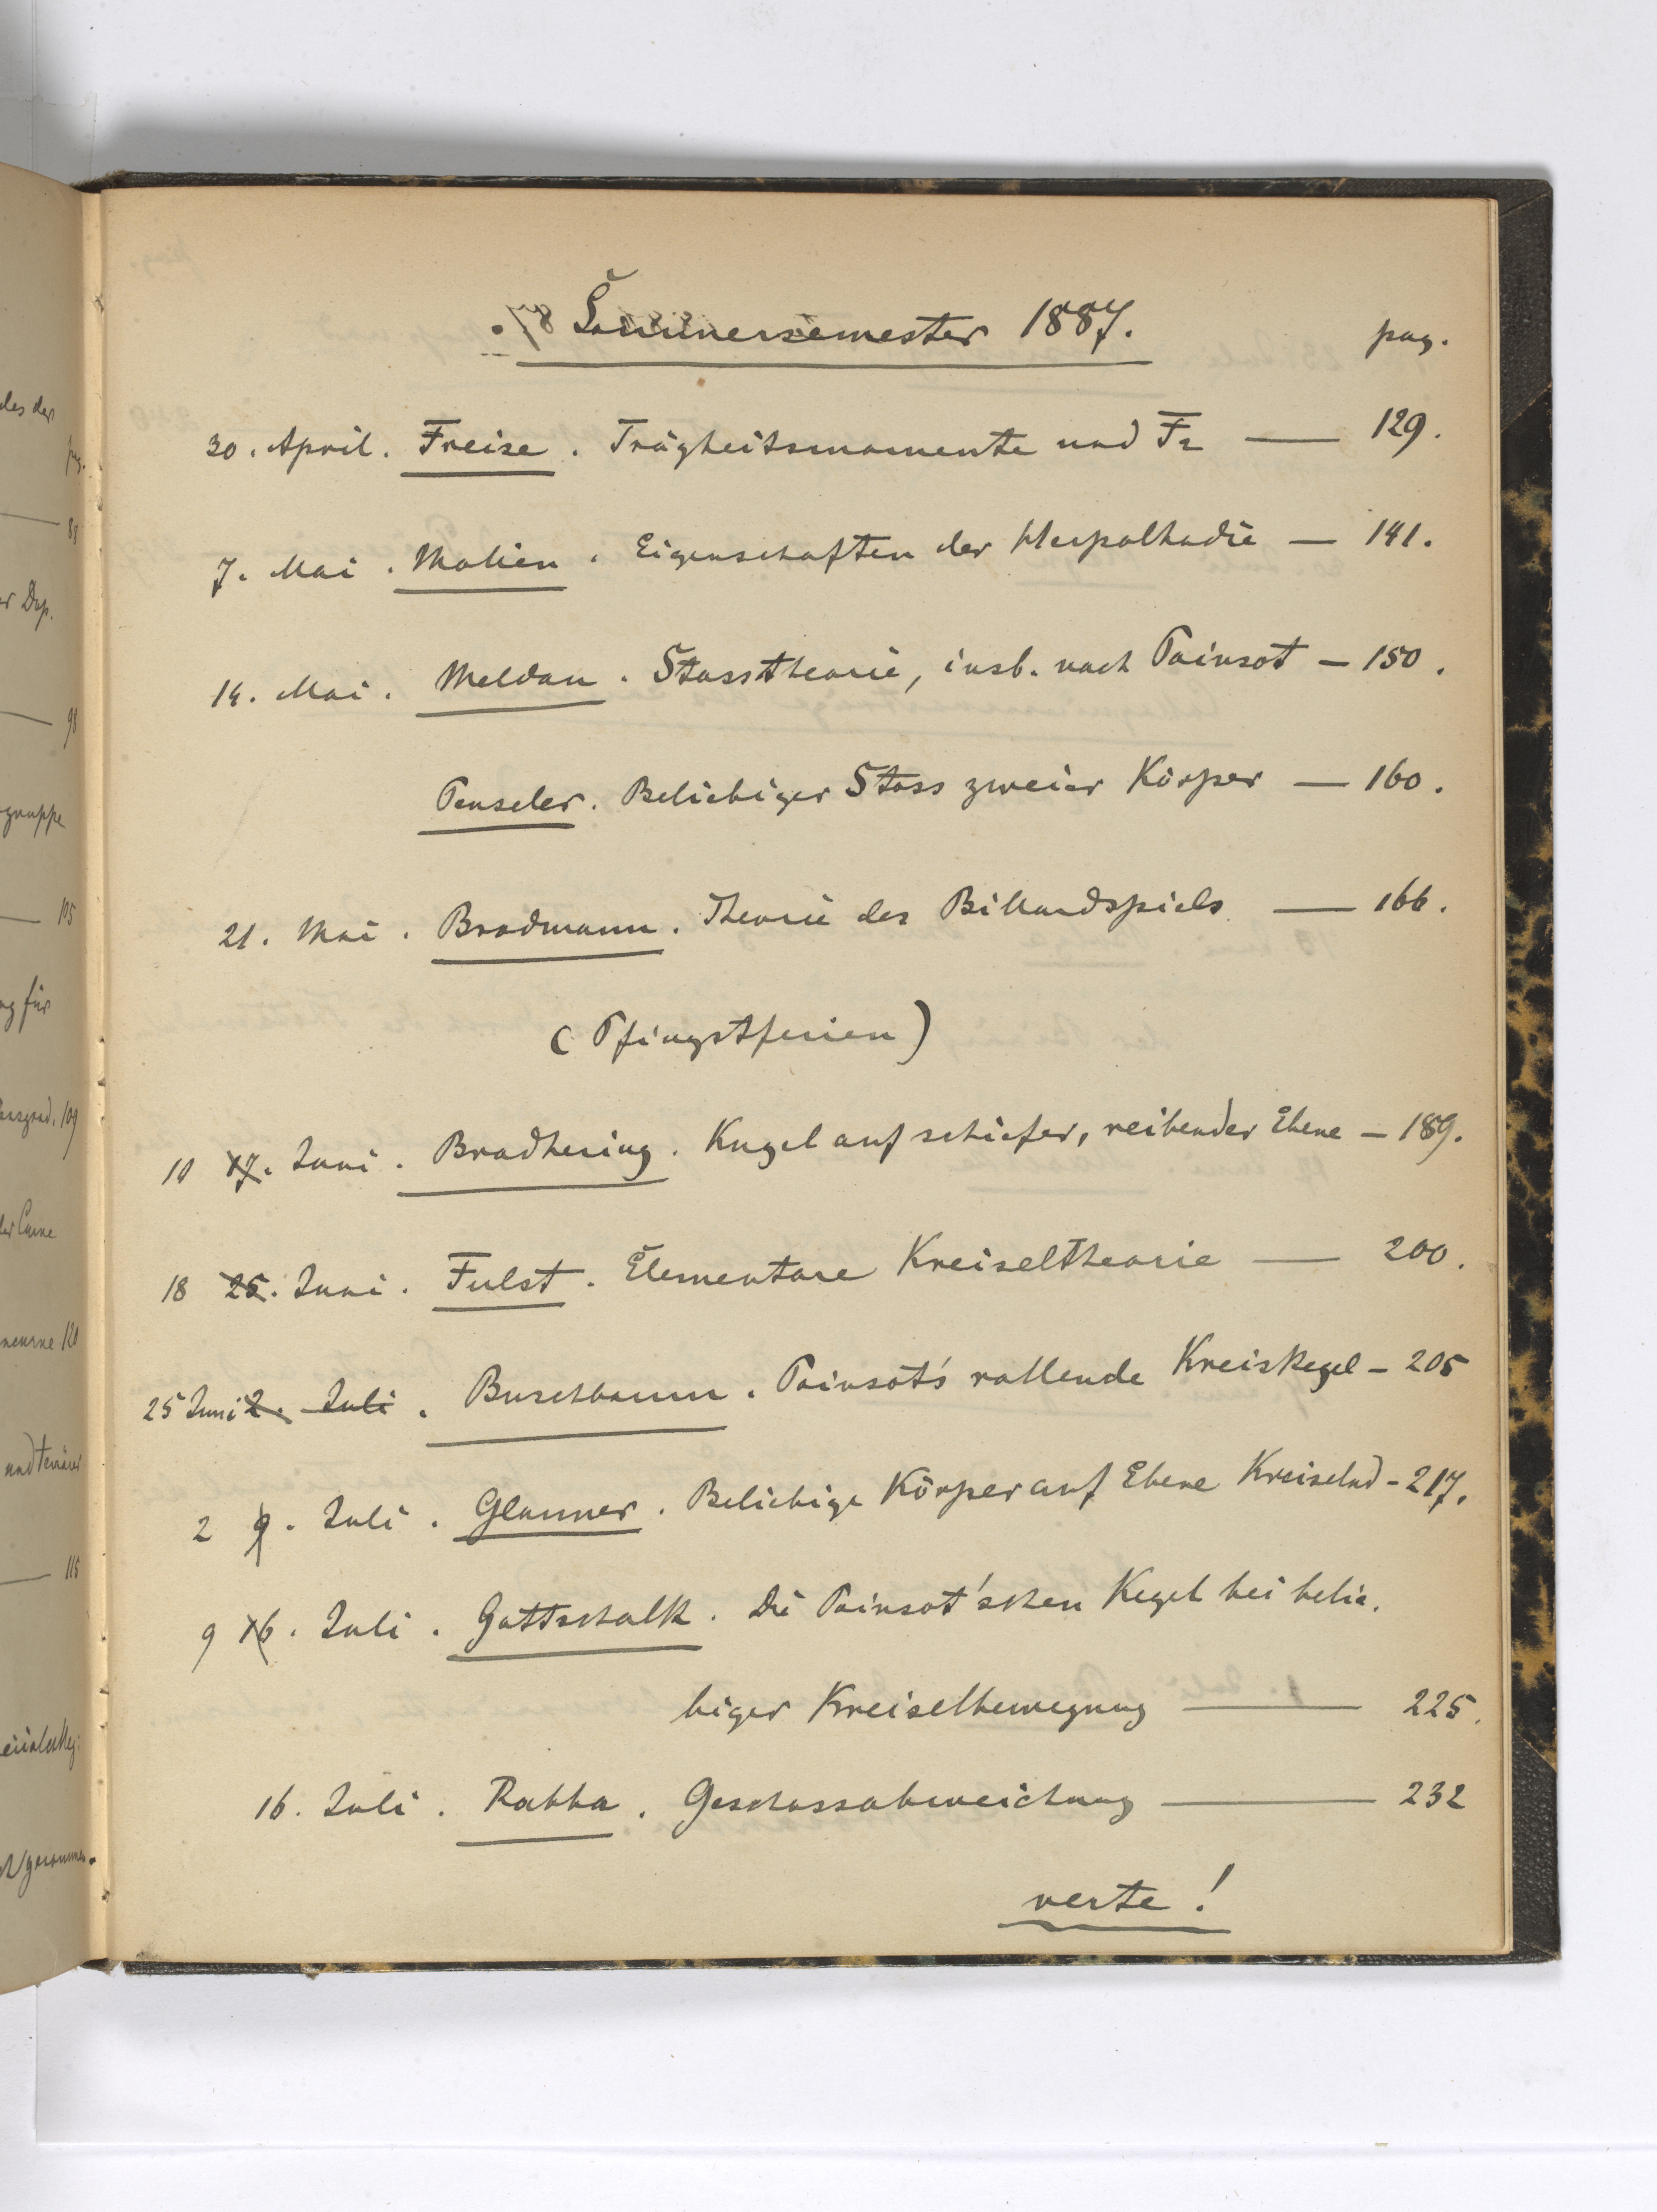 Sommersemester 1887.
pag.
30. April. Freise. Trägheitsmomente und F2 — 129.
7. Mai. Molien. Eigenschaften der Herpolhodie — 141.
14. Mai. Meldau. Stosstheorie, insb. nach Poinsot — 150.
Penseler. Beliebiger Stoss zweier Körper — 160.
21. Mai. Brodmann. Theorie des Billardspiels — 166.
(Pfingstferien)
10 17. Juni. Bradhering. Kugel auf schiefer, reibender Ebene — 189.
18 25. Juni. Fulst. Elementare Kreiseltheorie — 200.
25 Juni 2. Juli. Buschbaum. Poinsot's rollende Kreiskegel — 205
2 9. Juli. Glauner. Beliebige Körper auf Ebene Kreiselnd — 217.
9 16. Juli. Gottschalk. Die Poinsot'schen Kegel bei belie-
biger Kreiselbewegung — 225.
16. Juli. Rabba. Geschossabweichung — 232
verte!
des der
pg.
88
98
gruppe
105
ng für
109
der Curve
120
und
115